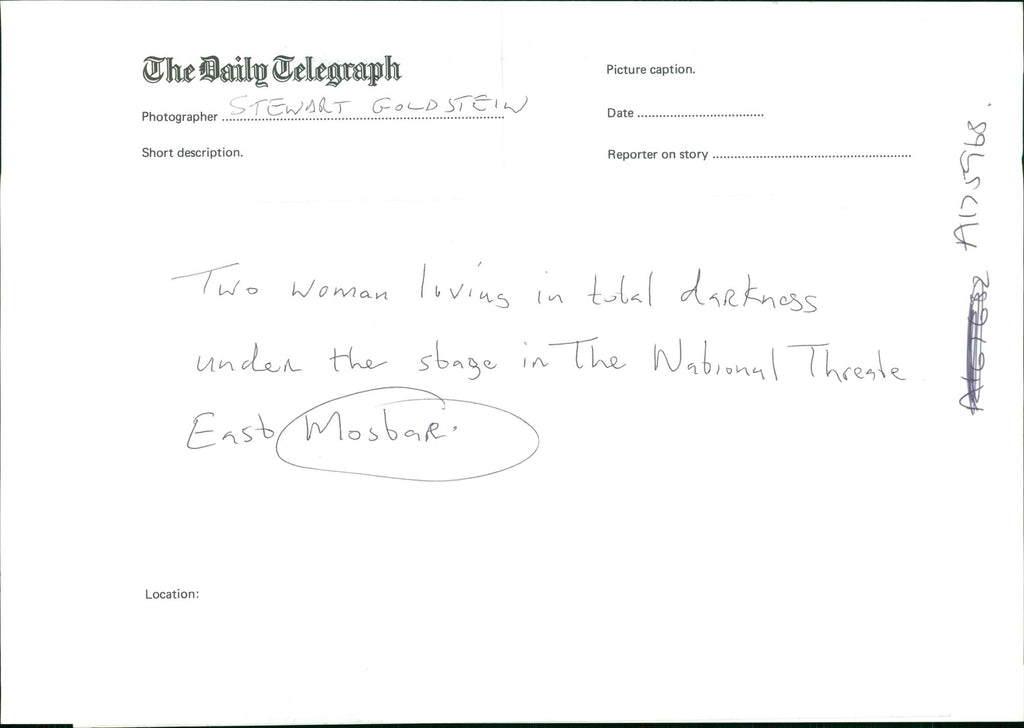 The Daily Telegraph
Photographer STEWART GOLDSTEIN
Short description.
Picture caption.
Date
Reporter on story
Two woman living in total darkness
under the stage in The National Threate
East Mostar.
Location:
A175968.